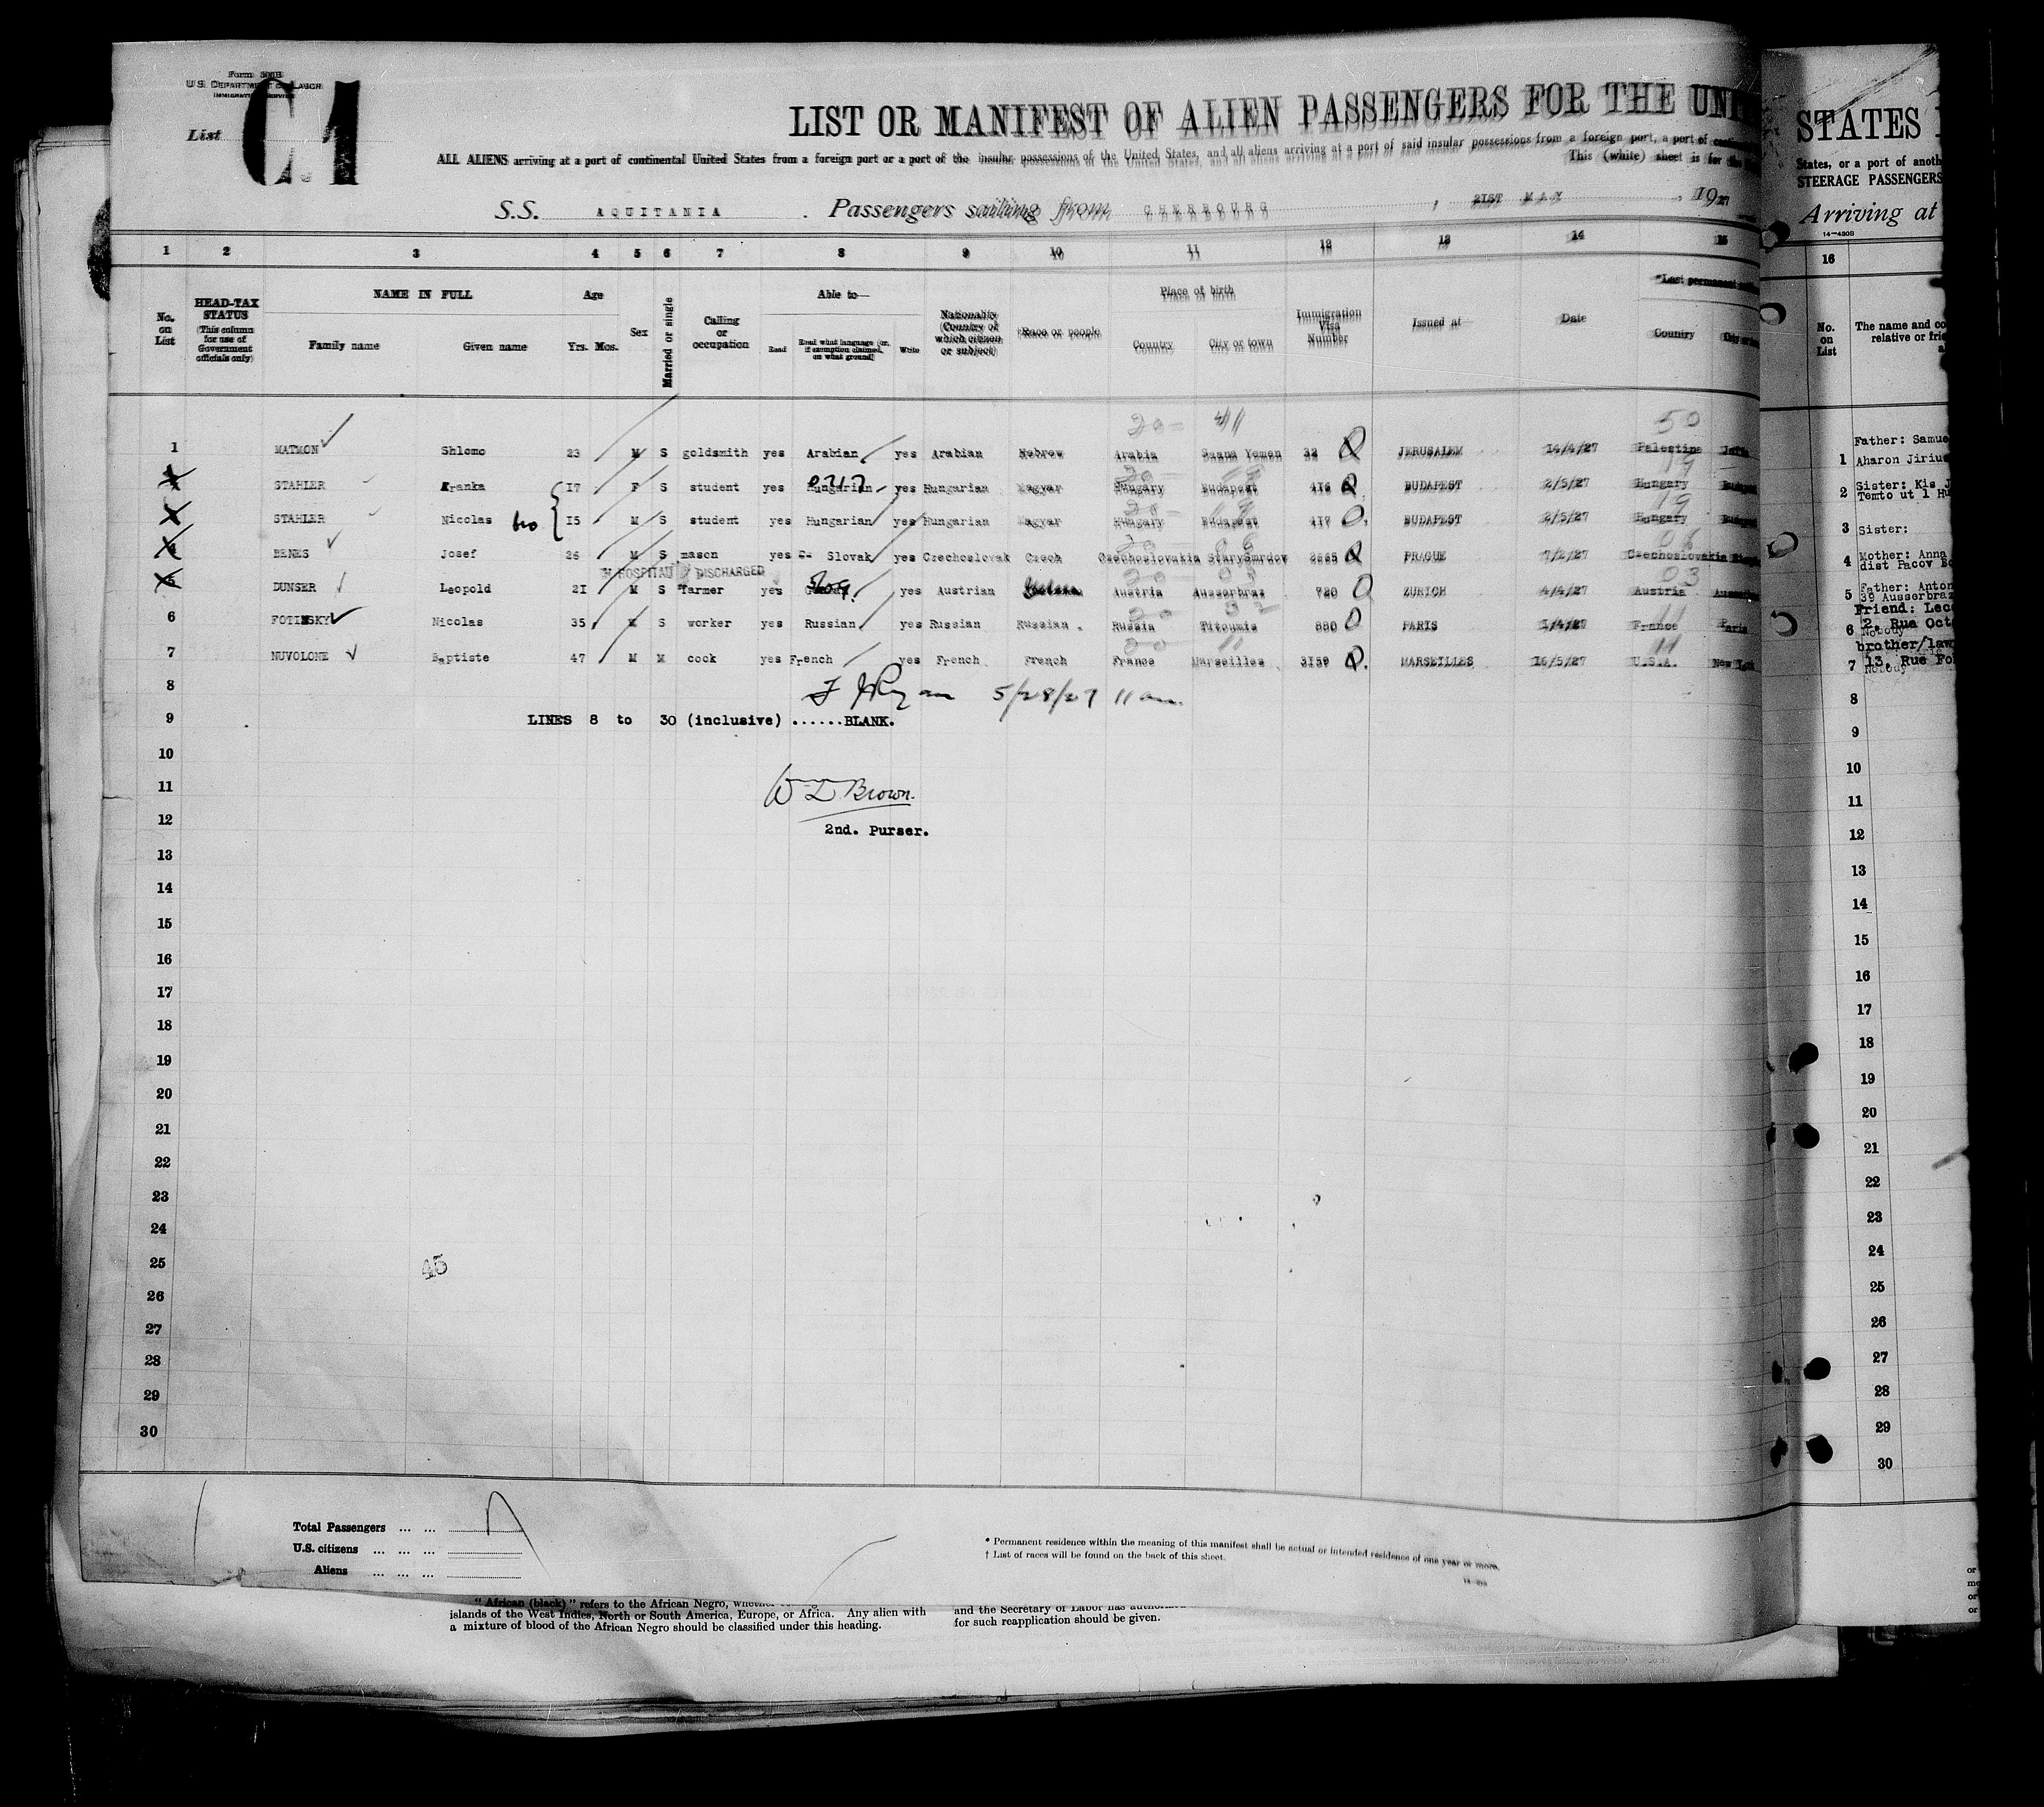 Form 500B
U.S. DEPARTMENT OF LABOR
IMMIGRATION SERVICE
List C1
LIST OR MANIFEST OF ALIEN PASSENGERS FOR THE UNI
ALL ALIENS arriving at a port of continental United States from a foreign port or a port of the insular possessions of the United States, and all aliens arriving at a port of said insular possessions from a foreign port, a port of
This (white) sheet is for
S.S. AQUITANIA . Passengers sailing from CHERBOURG , 21ST MAY , 1927
1 2 3 4 5 6 7 8 9 10 11 12 13 14 15
No. on List
HEAD-TAX STATUS (This column for use of Government officials only)
NAME IN FULL
Family name Given name
Age
Yrs. Mos.
Sex
Married or single
Calling or occupation
Able to—
Read Read what language (or, if exemption claimed, on what ground) Write
Nationality (Country of which citizen or subject)
Race or people
Place of birth
Country City or town
Immigration Visa Number
Issued at
Date
*Last permanent
Country
20- 50
1 MATMON Shlomo 23 M S goldsmith yes Arabian yes Arabian Hebrew Arabia Saana Yemen 32 JERUSALEM 14/4/27 Palestine Jaffa
STAHLER Franka 17 F S student yes Hungarian yes Hungarian Magyar Hungary Budapest 416 BUDAPEST 2/5/27 Hungary Budapest
STAHLER Nicolas bro 15 M S student yes Hungarian yes Hungarian Magyar Hungary Budapest 417 BUDAPEST 2/5/27 Hungary Budapest
4 BENES Josef 26 M S mason yes Slovak yes Czechoslovak Czech Czechoslovakia 2665 PRAGUE 7/2/27 Czechoslovakia
IN HOSPITAL DISCHARGED
5 DUNSER Leopold 21 M S farmer yes yes Austrian Austria Ausserbraz 720 ZURICH 4/4/27 Austria
6 FOTINSKY Nicolas 35 M S worker yes Russian yes Russian Russian Russia Titoumis 880 PARIS 1/4/27 France Paris
7 NUVOLONE Baptiste 47 M M cook yes French yes French French France Marseilles 3159 MARSEILLES 16/5/27 U.S.A. New York
8 5/28/27 11 am.
9 LINES 8 to 30 (inclusive) ......BLANK.
10
11 W L Brown.
12 2nd. Purser.
13
14
15
16
17
18
19
20
21
22
23
24
25 45
26
27
28
29
30
Total Passengers ... ... 7
U.S. citizens ... ... ...
Aliens ... ... ...
* Permanent residence within the meaning of this manifest shall be actual or intended residence of one year or more.
† List of races will be found on the back of this sheet.
"African (black)" refers to the African Negro, whether
islands of the West Indies, North or South America, Europe, or Africa. Any alien with
a mixture of blood of the African Negro should be classified under this heading.
and the Secretary of Labor has
for such reapplication should be given.
STATES
States, or a port of anoth
STEERAGE PASSENGERS
Arriving at
14-430B
16
No. on List
The name and co
relative or frie
Father: Samue
1 Aharon Jiriu
2 Sister: Kis J
Temto ut 1 Hu
3 Sister:
4 Mother: Anna
dist Pacov Bo
5 Father: Anton
39 Ausserbraz
Friend: Leco
2, Rue Octa
6 Nobody
brother/law
7 13, Rue Fo
Nobody
8
9
10
11
12
13
14
15
16
17
18
19
20
21
22
23
24
25
26
27
28
29
30